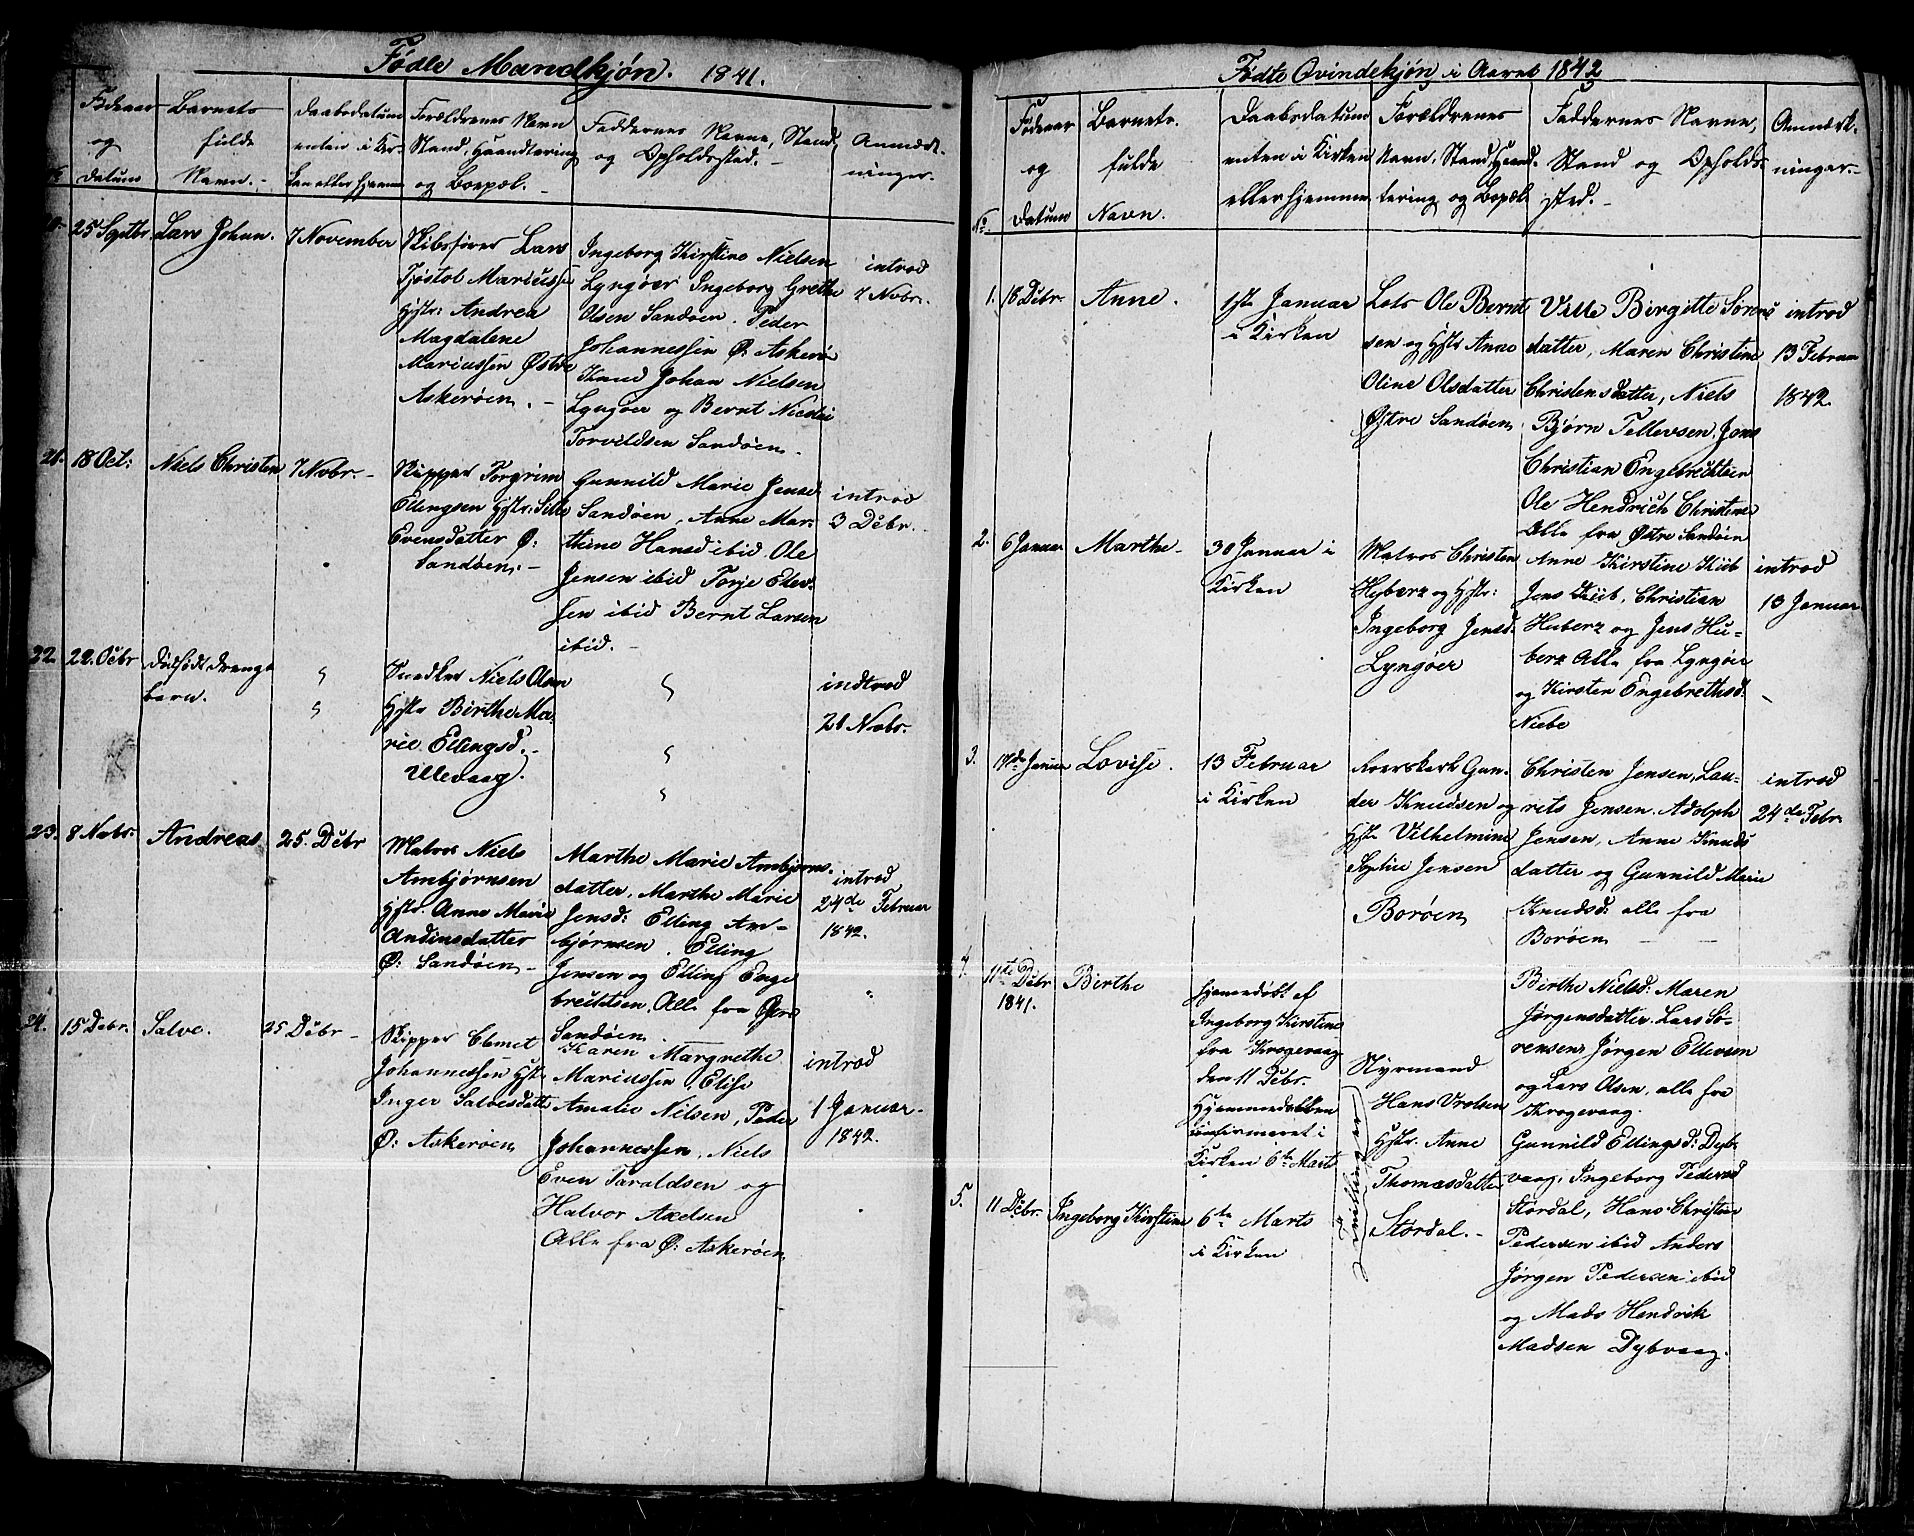 Fødte Mandkjøn. 1841.
Fødeaar
og
Datum
Barnets
fulde
Navn.
Daabsdatum
enten i Kir-
ken eller hjemme
Forældrenes Navn
Stand, Haandtering
og Boepæl.
Faddernes Navne, Stand,
og Opholdssted.
Anmærk-
ninger.
25 Septbr.
Lars Johan.
7 November
Skibsfører Lars
Tjøstol Mariussen
Hstr: Andrea
Magdalene
Mariussen Østre
Askerøen.
Ingeborg Kirstine Nielsen
Lyngøer Ingeborg Grethe
Olsen Sandøen. Peder
Johannessen Ø: Askerøe
Knud Johan Nielsen
Lyngøer og Bernt Nicolai
Torvildsen Sandøen.
introd
7 Nobr.
21.
18 Oct:
Niels Christen
7 Nobr.
Skipper Torgrim
Ellingsen Hstr: Sille
Evensdatter Ø:
Sandøen.
Gunnild Marie Jensd
Sandøen, Anne Mar-
thine Hansd ibid Ole
Jensen ibid Torje Ellev-
sen ibid Bernt Larsen
ibid.
introd
3 Dcbr.
22.
22. Octbr
Dødfødt Drenge-
barn.
Snedker Niels Olsen
Hstr Birthe Ma-
rie Ellingsd.
Ullevaag.
indtrod
21 Nobr.
23.
8 Nobr.
Andreas
25. Dcbr
Matros Niels
Ambjørnsen
Hstr. Anne Marie
Andinsdatter
Ø: Sandøen
Marthe Marie Ambjørns-
datter, Marthe Marie
Jensd: Elling Am-
bjørnsen. Elling
Jensen og Elling Enge
brechtsen. Alle fra Østre
Sandøen
introd
24de Februar
1842.
24.
15 Dcbr.
Salve.
25 Dcbr
Skipper Clemet
Johannessen Hstr
Inger Salvesdatter
Ø: Askerøen
Karen Margrethe
Mariussen, Elise
Amalie Nilsen, Peder
Johannessen, Niels
Even Taraldsen og
Halvor Axelsen
Alle fra Ø: Askerøen
introd
1 Januar
1842.
Fødte Qvindekjøn i Aaret 1842
No
Fødeaar
og
Datum
Barnets
fulde
Navn.
Daabsdatum
enten i Kirken
eller hjemme
Forældrenes
Navn, Stand, Haand-
tering og Bopæl
Faddernes Navne,
Stand og Opholds-
sted.
Anmærk-
ninger.
1.
18 Dcbr.
Anne.
1ste Januar
i Kirken
Lots Ole Bernt
sen og Hstr Anne
Oline Olsdatter
Østre Sandøen
Ville Birgitte Sørens
datter, Maren Christine
Christensdatter, Niels
Bjørn Tellevsen, Jens
Christian Engebrechtsen
Ole Hendrich Christine
Alle fra Østre Sandøen
introd
13 Februar
1842.
2.
6 Januar
Marthe
30 Januar i
Kirken
Matros Christen
Hyberz og Hstr:
Ingeborg Jensd.
Lyngøer
Anne Kirstine Kiib
Jens Kiib, Christian
Huberz og Jens Hu-
berz Alle fra Lyngøer
og Kirsten Engebrethsd.
Niebe
introd
13 Januar
3.
17de Januar
Lovise.
13 Februar
i Kirken
Koerskerk Gun-
der Knudsen og
Hstr Vilhelmine
Sophie Jensen
Borøen
Christen Jensen, Lau-
rits Jensen, Adolph
Jensen, Anne Knuds
datter og Gunnild Marie
Knudsd: alle fra
Borøen
introd
24de Febr.
4.
11te Dcbr
1841.
Birthe
hjemmedøbt af
Ingeborg Kirstine
fra Krogevaag
den 11 Dcbr.
Hjemmedaaben
confirmeret i
Kirken 6te Marts
Styrmand
Hans Vrolsen
Hstr. Anne
Thomasdatter
Stordal.
Tvillinger
Birthe Nielsd: Maren
Jørgensdatter. Lars Sø-
rensen Jørgen Ellevsen
og Lars Olsen, alle fra
Krogevaag.
5.
11 Dcbr.
Ingeborg Kirstine
6te Marts
i Kirken
Gunnild Ellingsd: Dyb-
vaag, Ingeborg Pedersd
Stordal, Hans Christian
Pedersen ibid Anders
Jørgen Pedersen ibid
og Mads Hendrik
Madsen Dybvaag.